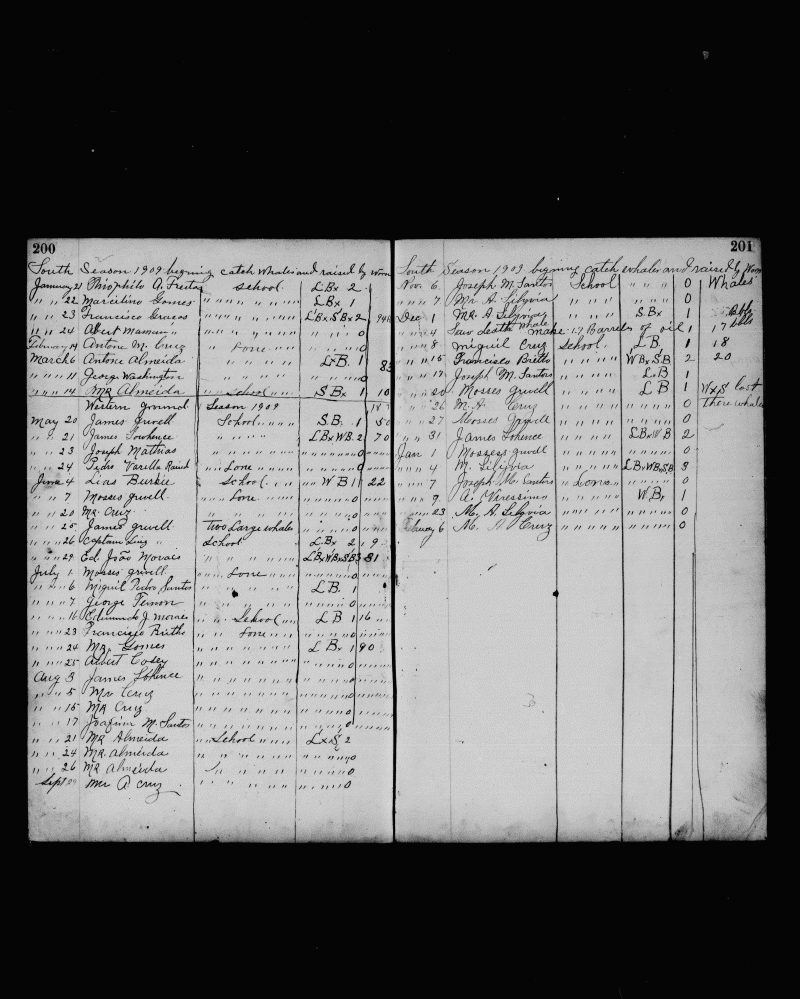 200
South Season 1909 begining catch whales and raised by
January 21 Phiophilo A. Freitas School L Bx 2
" " 22 Marcilino Gomes " " " " L Bx 1
" " 23 Francisco " " " " L Bx S Bx 2
" " 24 Abert " " " " 0
February 14 Antone M. Cruz " Lone " " 0
March 6 Antone Almeida " " " " L B. 1
" " 11 George Washington " " " " 0
" " 14 MR Almeida School " " S Bx 1 10
Western Season 1909
May 20 James gruvell School " " S B. 1 50
" " 21 James " " " " L Bx WB. 2 70
" " 23 Joseph Mathias " " " " 0
" " 24 Pedro Varella " Lone " " 0
June 4 School " " W B 1 22
" " 7 Moses gruvell " Lone " " 0
" " 20 MR Cruz " " " " 0
" " 25 James gruvell Two Large whales " " 0
" " 26 Captain School L Bx 2 9
" " 29 Ed João Morais " " " " L Bx W Bx S B 3 81
July 1 Mosses gruvell " Lone " " 0
" " 6 Miguil Pedro Santos " " " " L B. 1
" " 7 George " " " " 0
" " 16 Edmundo J. Morais " School " " L B 1 16
" " 23 Francisco " Lone " " 0
" " 24 MR. Gomes " " " " L Bx 1 90
" " 25 Albert " " " " 0
Aug 3 James " " " " 0
" " 5 Mr Cruz " " " " 0
" " 15 MR Cruz " " " " 0
" " 17 Joaquim M. Santos " " " " 0
" " 21 MR Almeida School " " L x S 2
" " 24 MR. almeida " " " " 0
" " 26 MR almeida " " " " 0
Sept A Cruz " " " " 0
201
South Season 1909 begining catch whales and raised by
Nov. 6 Joseph M. Santos School " " " 0 Whales
" " 7 Mr A. Silyvia " " " " 0
Dec 1 MR A Silyvia " " " " S. Bx 1
" " 4 Saw death Whale make 17 Barrels of oil 1 17 bbls
" " 8 Miguil Cruz School. L B. 1 18
" " 15 Francisco Britto " " " " W Bx S B 2 20
" " 17 Joseph M. Santos " " " " L B 1
" " 20 Mosses gruvell " " " " L B 1 W x S lost
" " 26 M. A. Cruz " " " " 0 there whale
" " 27 Mosses gruvell " " " " 0
" " 31 James " " " " L B x W B 2
Jan 1 Mossess gruvell " " " " 0
" " 4 M. Silyvia " " " " L Bx WBx S B 3
" " 7 Joseph M. Santos " Lone " " 0
" " 9 A. " " " " W Bx 1
" " 23 M. A Silyvia " " " " 0
February 6 M. A Cruz " " " " 0